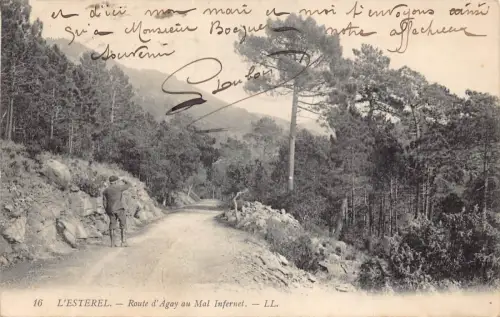 et d'ici mon mari et moi t'envoyons ainsi
qu'à Monsieur Bocquet notre affectueux
souvenir
16 L'ESTÉREL. — Route d'Agay au Mal Infernet. — LL.